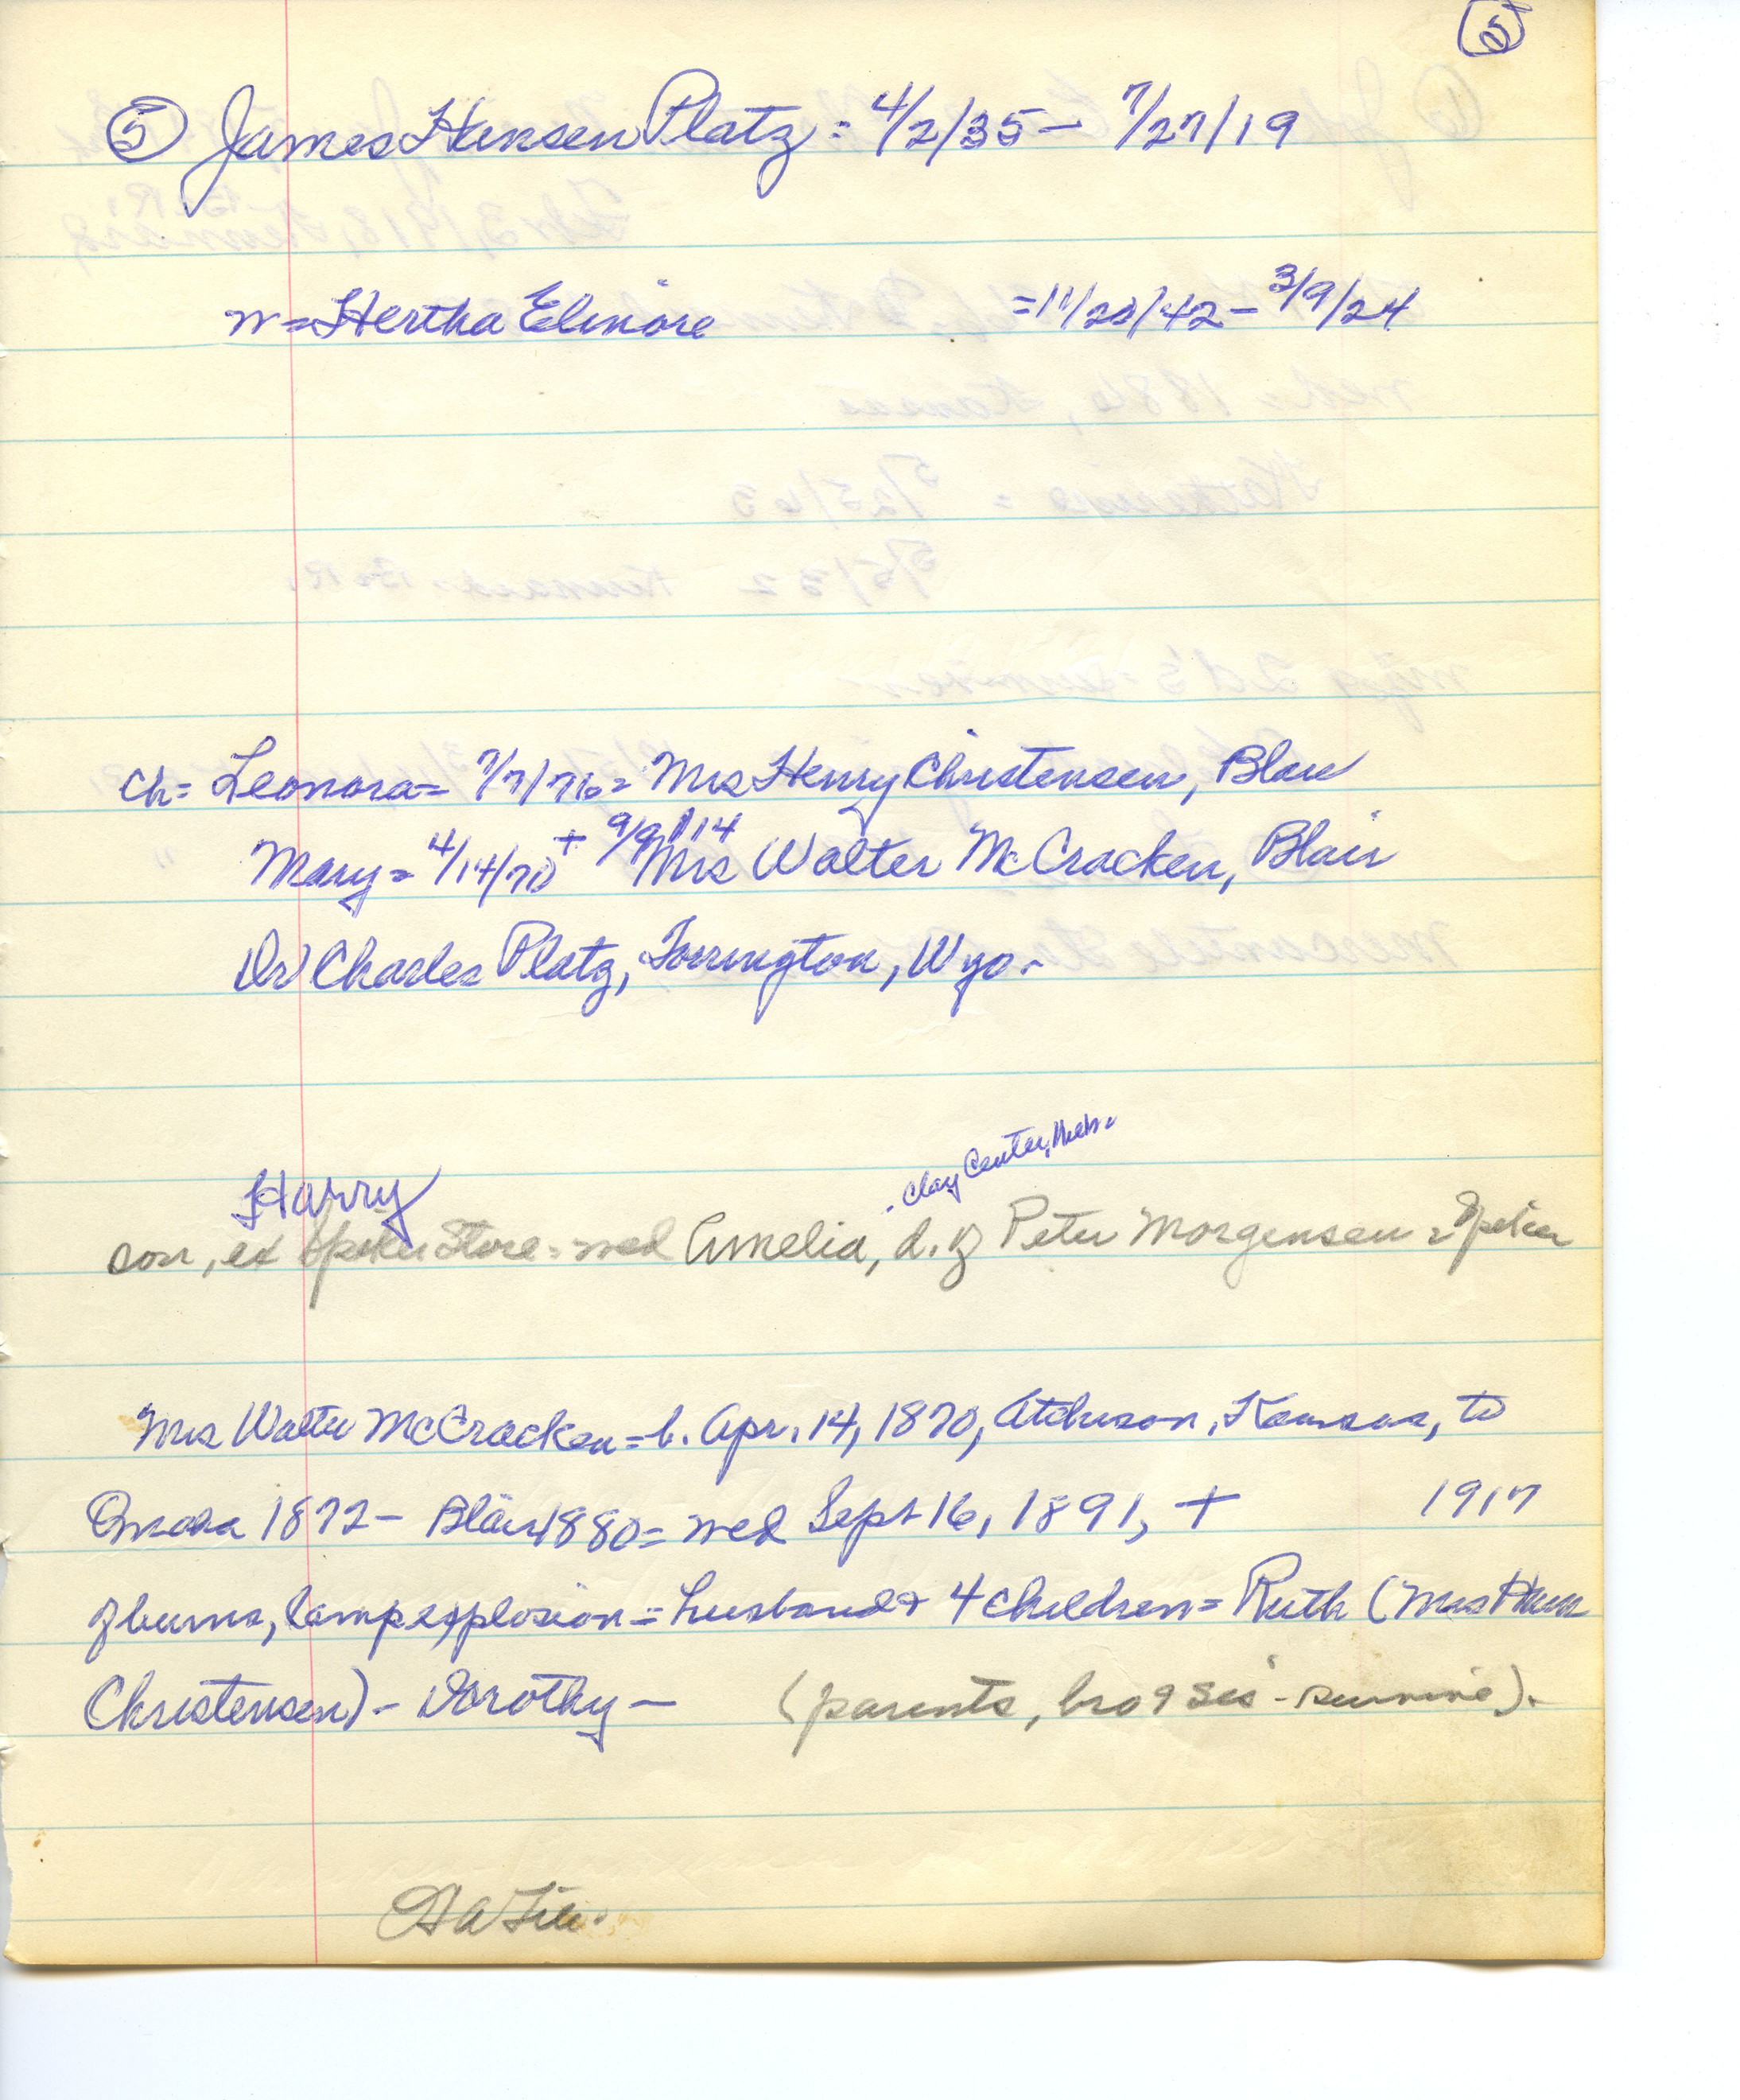 5
5 James Hansen Platz = 4/2/35 - 7/27/19
w = Hertha Elinore = 11/20/42 - 3/9/24
ch = Leonora = 7/7/76 = Mrs Henry Christensen, Blair
Mary = 4/14/70 + 9/9/14 Mrs Walter McCracken, Blair
Dr Charles Platz, Torrington, Wyo.
Clay Center, Neb.
Harry
son, ex Spiker Store = wed Amelia, d. of Peter Morgensen = Spiker
Mrs Walter McCracken = b. Apr. 14, 1870, Atchison, Kansas, to
Omaha 1872 - Blair 1880 = wed Sept 16, 1891, + 1917
of burns, lamp explosion = husband & 4 children = Ruth (Mrs
Christensen) - Dorothy - (parents, bro & sis - survive).